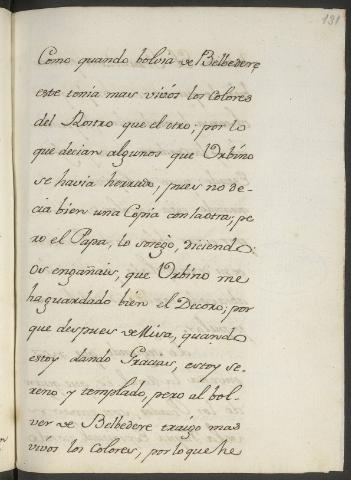 131
Como quando bolvia de Belbedere
este tenia mas vivos los Colores
del Rostro que el otro; por lo
que decian algunos que Urbino
se havia herrado, pues no de-
cia bien una Copia con la otra; pe
ro el Papa, lo sosegò, diciendo:
Os engañais, que Urbino me
ha guardado bien el Decoro; por
que despues de Misa, quando
estoy dando Gracias, estoy se-
reno y templado, pero al bol-
ver de Belbedere traigo mas
vivos los Colores, por lo que he